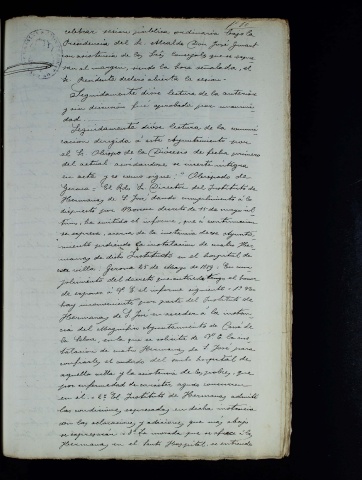 celebrar sesion pública ordinaria bajo la
Presidencia del Sr. Alcalde Don José
con asistencia de los Sres. Concejales que se expre
san al margen, siendo la hora señalada, el
Sr. Presidente declaro abierta la sesion.
Seguidamente diose lectura de la anterior
y sin discusion fué aprobada por unanimi
dad.
Seguidamente diose lectura de la comuni
cacion dirigida á este Ayuntamiento por
el Sr. Obispo de la Diócesis de fecha primero
del actual acordandose se inserte integra
en acta y es como sigue: "Obispado de
Gerona = El Rdo. Sr. Director del Instituto de
Hermanas de S. José, dando cumplimiento á lo
dispuesto por decreto de 15 de Mayo úl
timo, ha emitido el informe, que á continuacion
se expresa, acerca de la instancia de ese Ayunta-
miento pidiendo la instalacion de cuatro Her
manas de dicho Instituto en el hospital de
esta villa. Gerona 25 de Mayo de = En cum
plimiento del decreto que antecede tengo el honor
de exponer á V. E. el informe siguiente = 1º No
hay inconveniente por parte del Instituto de
Hermanas de S. José en acceder á la instan
cia del Magnífico Ayuntamiento de Casá de
la Selva, en la que se solicita de V. E. la ins
talacion de cuatro Hermanas de S. José para
confiarles el cuidado del santo hospital de
aquella villa y la asistencia de los pobres, que
por enfermedad de carácter agudo concurren
en él. = 2º El Instituto de Hermanas admite
las condiciones, expresadas en dicha instancia
con las aclaraciones, y adiciones, que mas abajo
se expresarán = 3º La morada que se ofrece á las
Hermanas en el Santo Hospital, se entiende